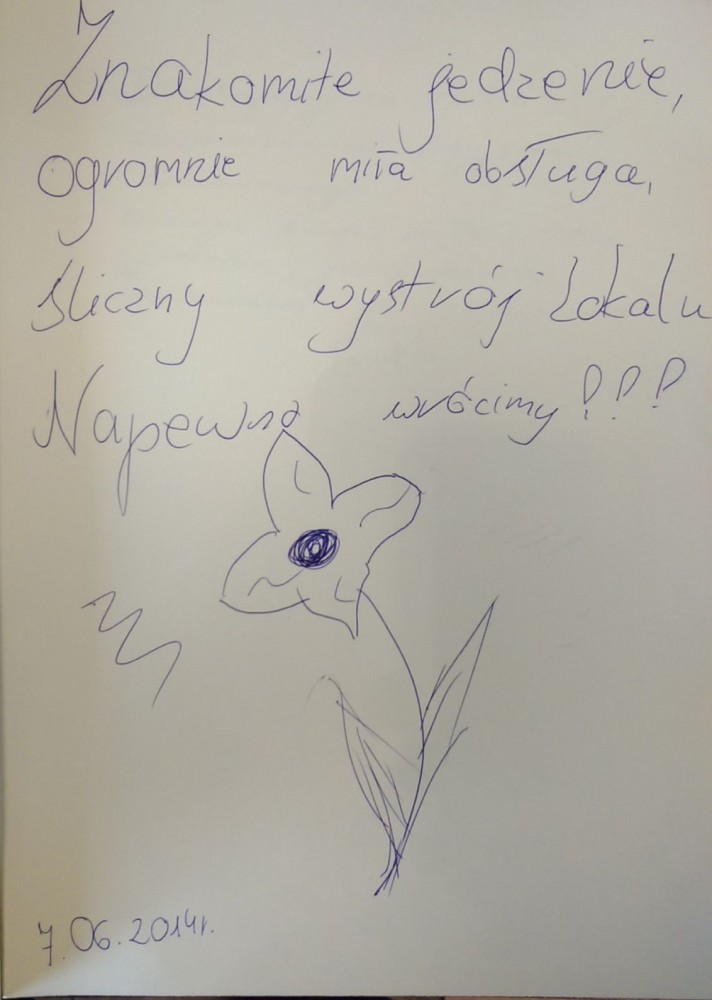 Znakomite jedzenie,
ogromnie miła obsługa,
śliczny wystrój lokalu
Napewno wrócimy!!!
7.06.2014r.